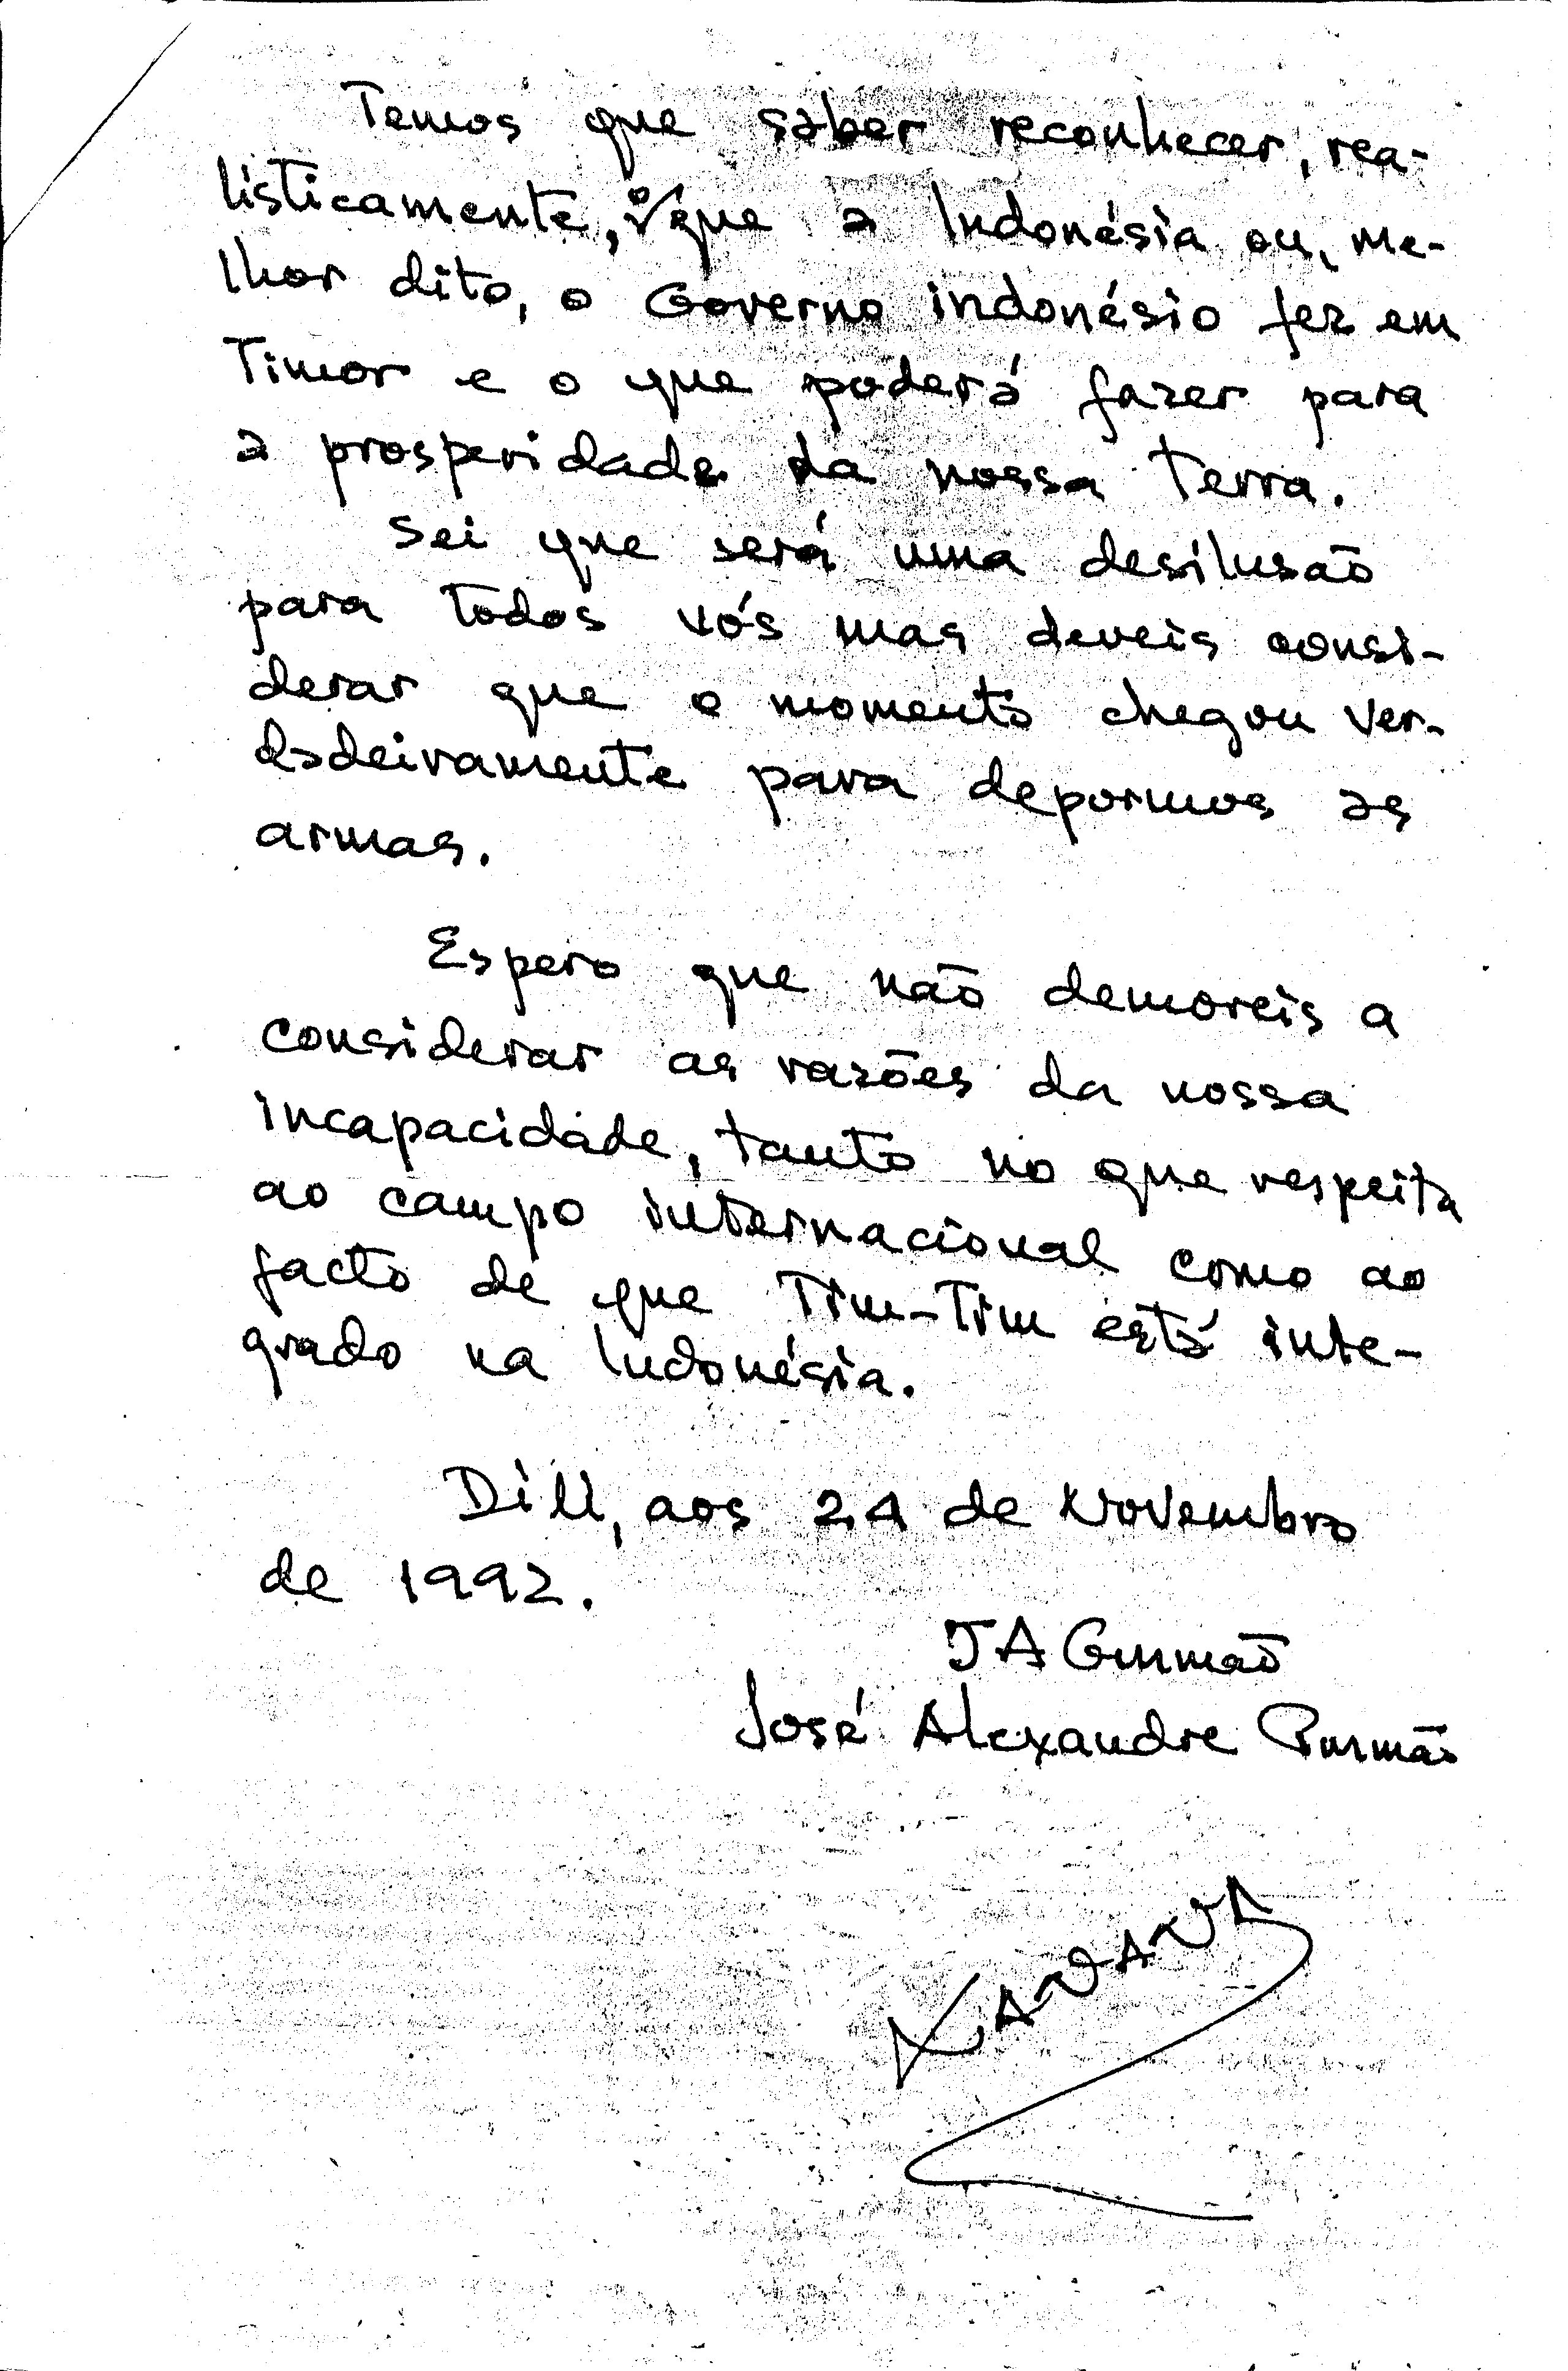 Temos que saber reconhecer, rea-
listicamente, o que a Indonésia ou, me-
lhor dito, o Governo indonésio fez em
Timor e o que poderá fazer para
a prosperidade da nossa Terra.
Sei que será uma desilusão
para todos vós mas deveis consi-
derar que o momento chegou ver-
dadeiramente para depormos as
armas.
Espero que não demoreis a
considerar as razões da nossa
incapacidade, tanto no que respeita
ao campo internacional como ao
facto de que Tim-Tim está inte-
grado na Indonésia.
Dili, aos 24 de Novembro
de 1992.
JA Gusmão
José Alexandre Gusmão
XANANA